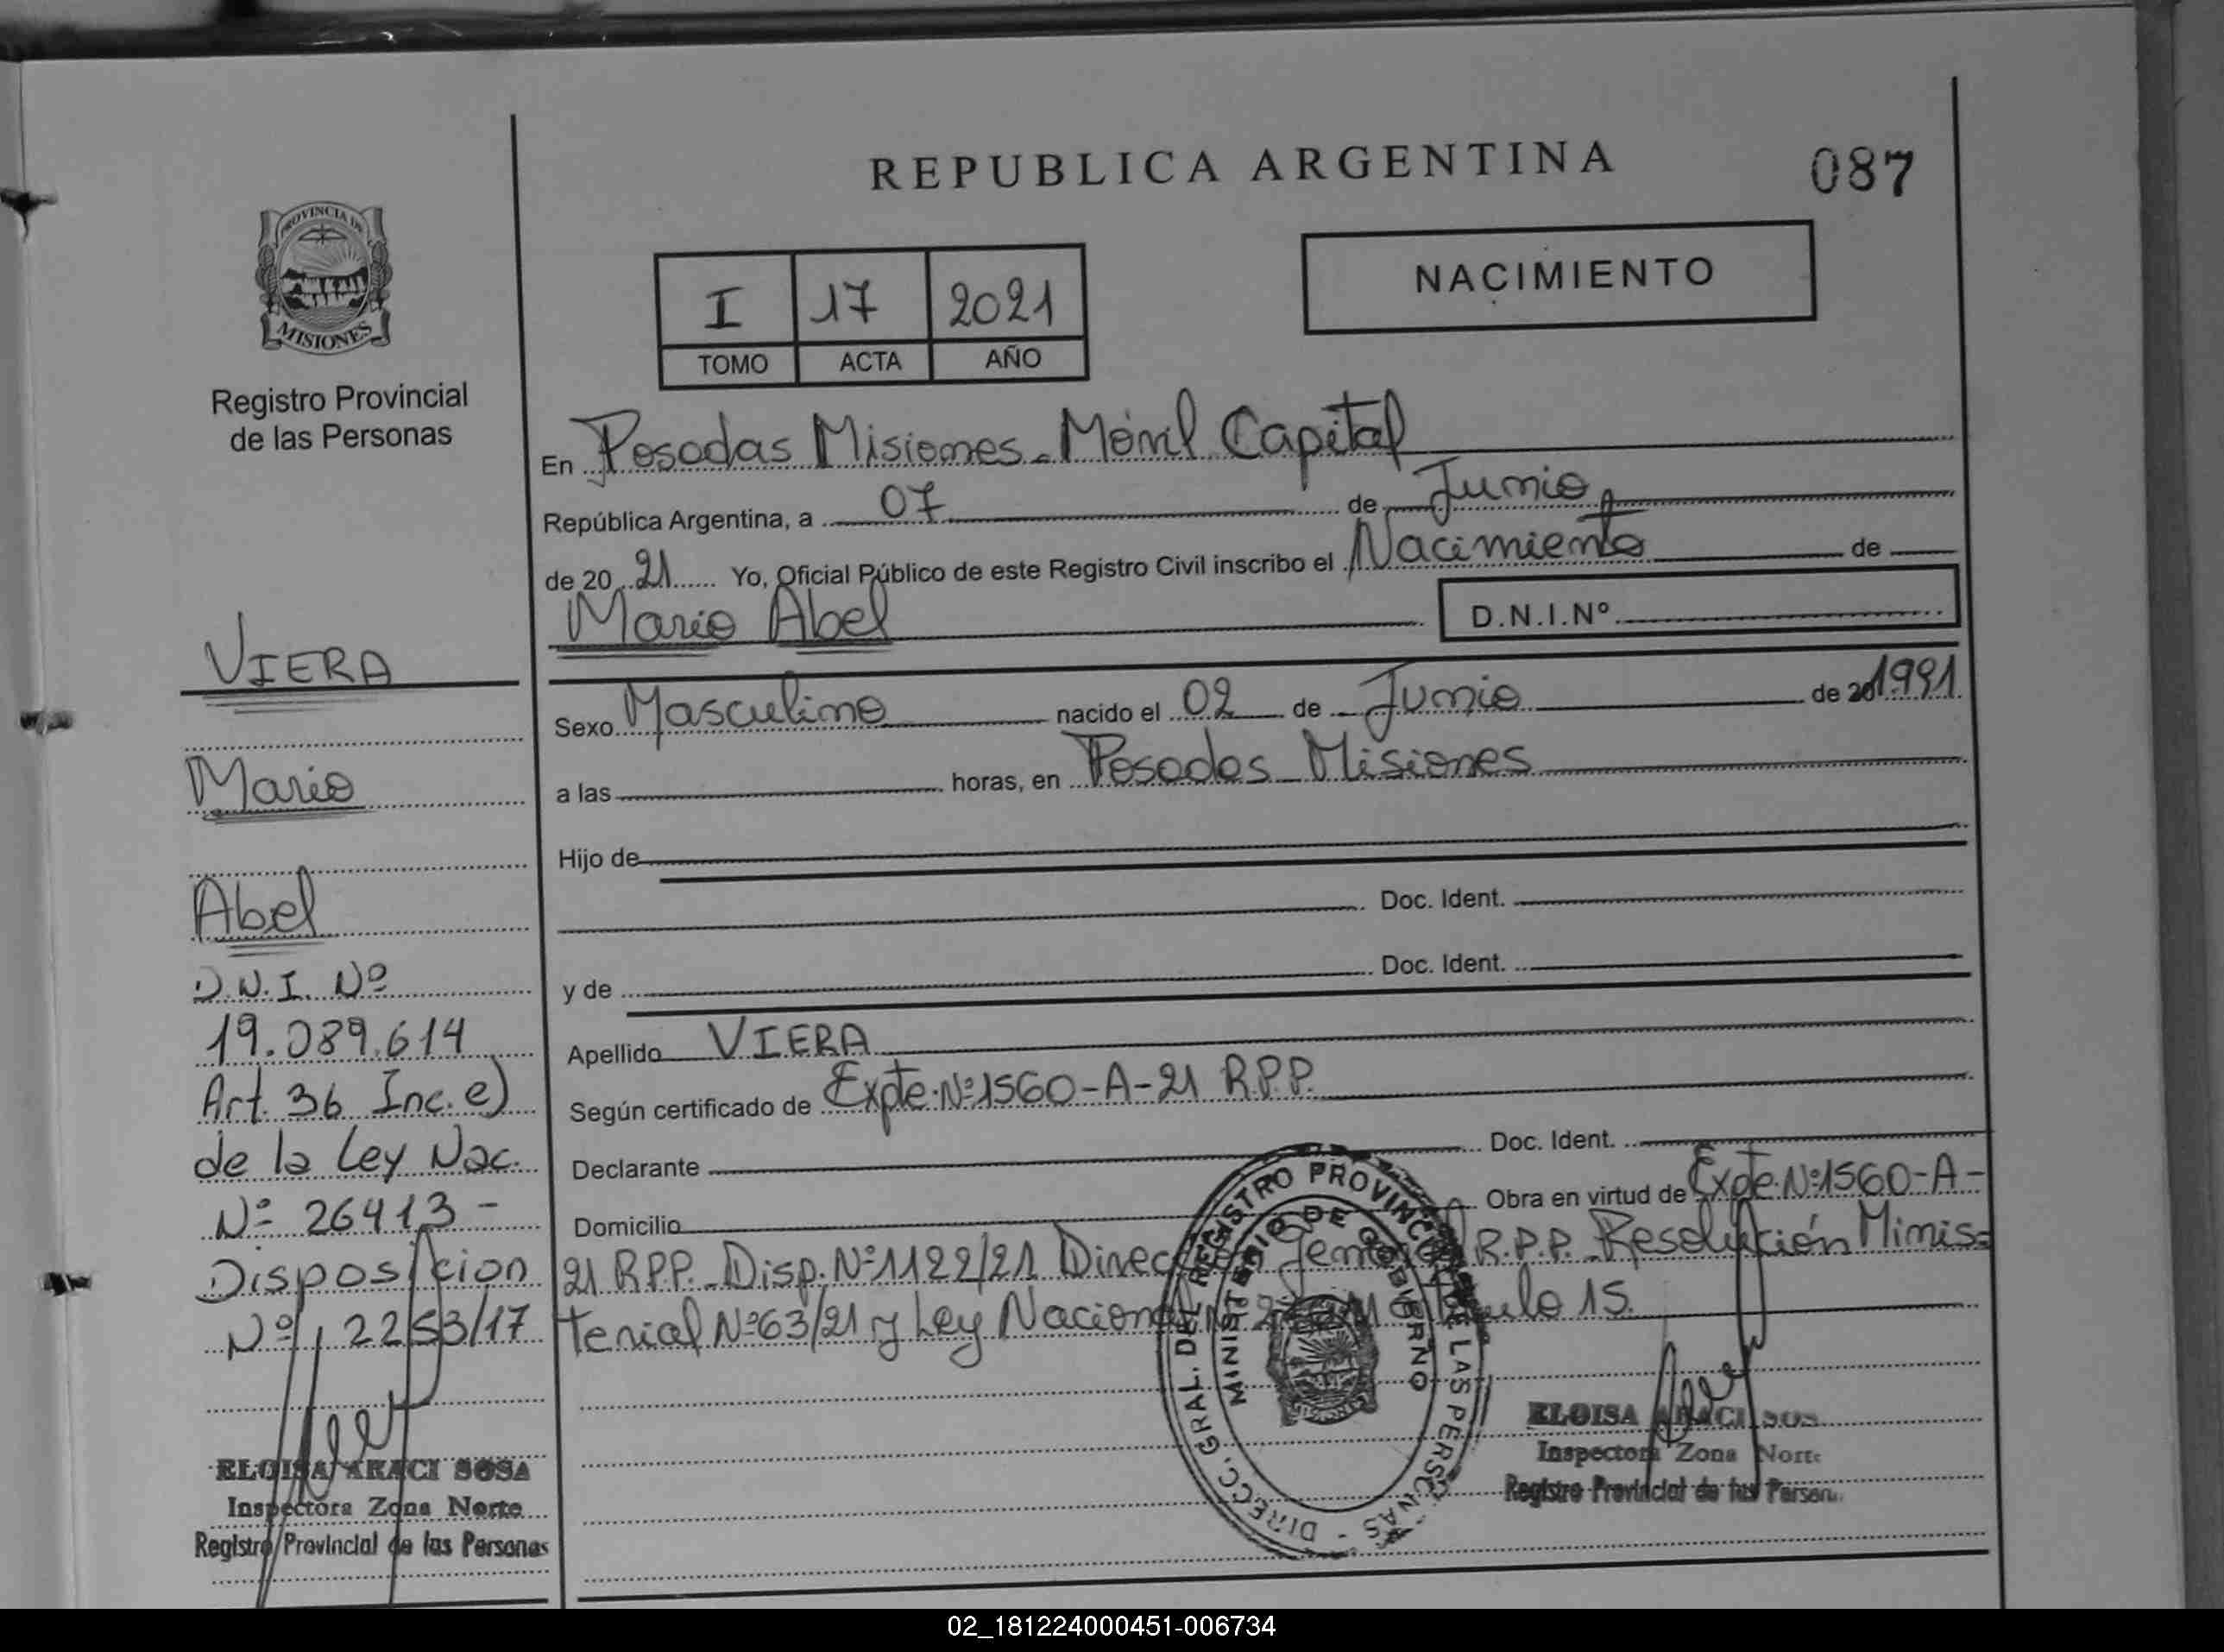 REPUBLICA ARGENTINA
087
PROVINCIA DE
MISIONES
Registro Provincial
de las Personas
I 17 2021
TOMO ACTA AÑO
NACIMIENTO
En Posadas Misiones - Móvil Capital
República Argentina, a 07 de Junio
de 20 21 Yo, Oficial Público de este Registro Civil inscribo el Nacimiento de
Mario Abel D.N.I.Nº
Sexo Masculino nacido el 02 de Junio de 20 1991
a las horas, en Posadas Misiones
Hijo de
Doc. Ident.
y de Doc. Ident.
Apellido VIERA
Según certificado de Expte. Nº 1560-A-21 R.P.P.
Declarante Doc. Ident.
Domicilio Obra en virtud de Expte. Nº 1560-A-
21 R.P.P. Disp. Nº 1122/21 Dirección General R.P.P. Resolución Minis-
terial Nº 63/21 y Ley Nacional 15.
VIERA
Mario
Abel
D.N.I. Nº
19.089.614
Art. 36 Inc. e)
de la Ley Nac.
Nº 26413 -
Disposicion
Nº 2253/17
ELOISA ARACI SOSA
Inspectora Zona Norte
Registro Provincial de las Personas
DIRECC. GRAL. DEL REGISTRO PROVINCIAL DE LAS PERSONAS
MINISTERIO DE GOBIERNO
ELOISA ARACI SOS
Inspectora Zona Norte
Registro Provincial de las Person
02_181224000451-006734